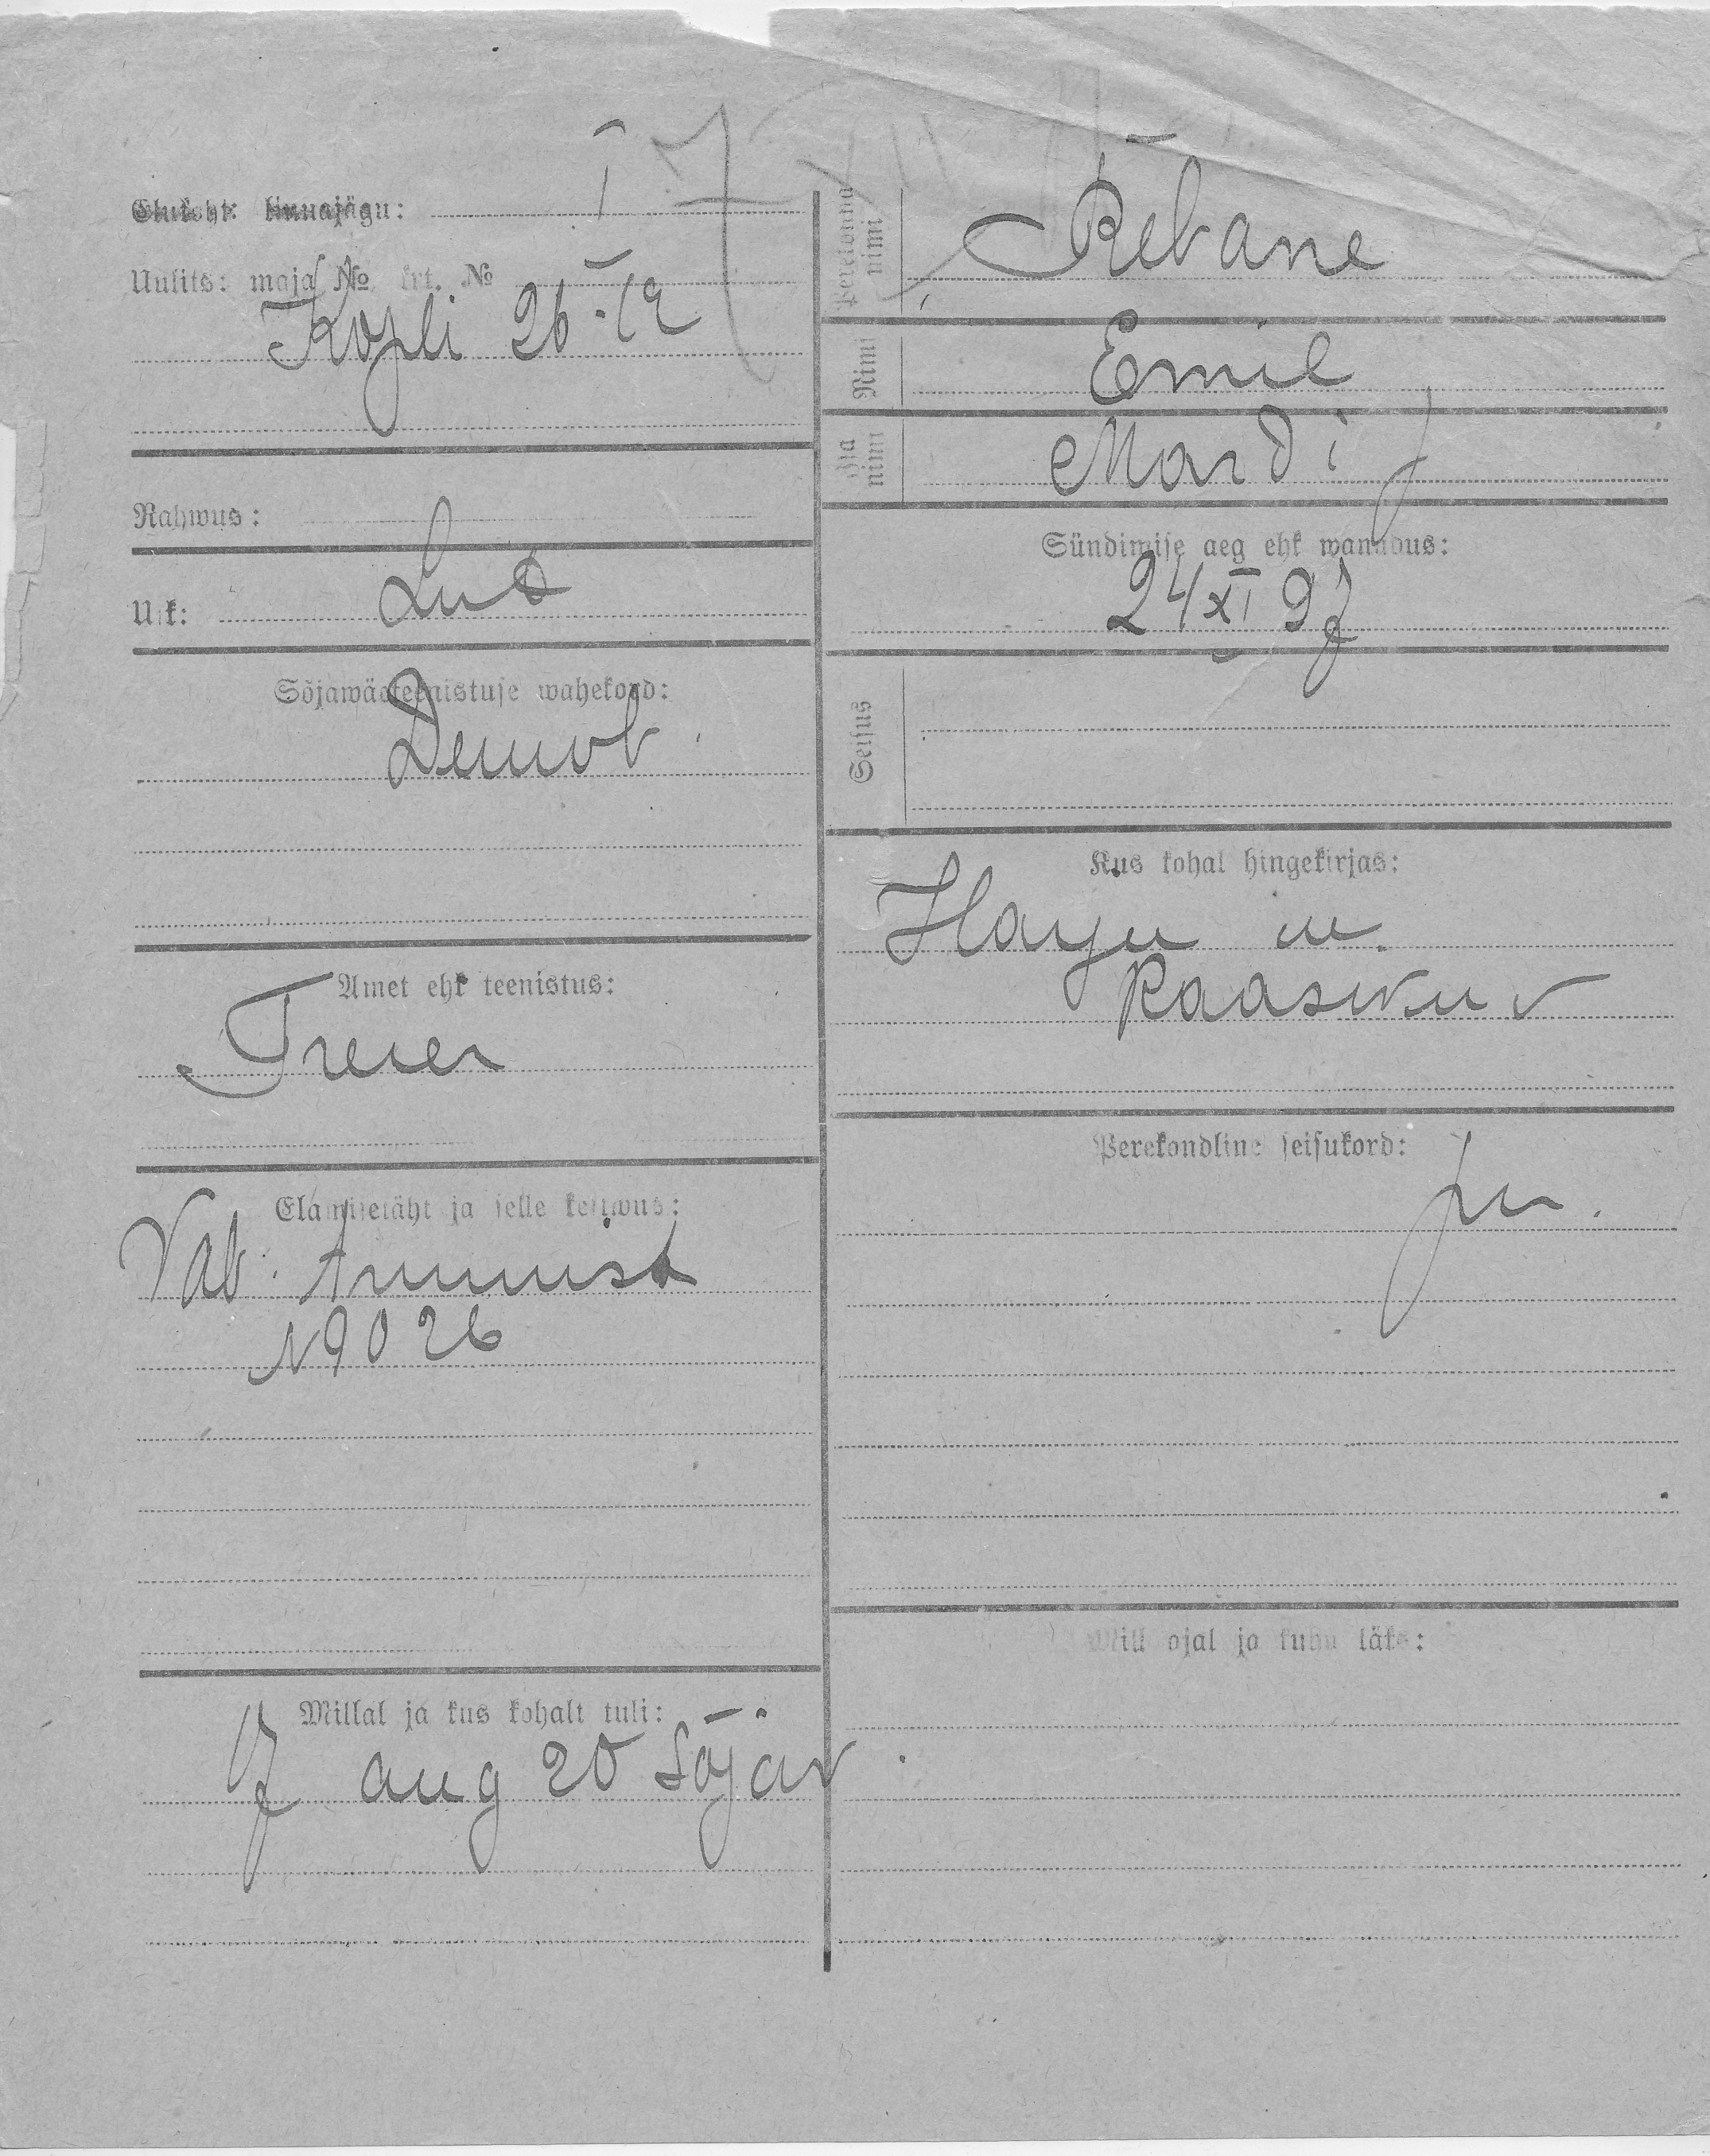 Elukoht: linnajägu: I
Uulits: maja № krt. №
Kopli 26-12
Rahwus:
Usk: Lut
Sõjawäeteenistuse wahekord:
Demob.
Amet ehk teenistus:
Treier
Elamisetäht ja selle kestwus:
Vab. Tunnist
N 9026
Millal ja kus kohalt tuli:
7 aug 20 Sõjav.
Perekonna nimi
Rebane
Nimi
Emil
Isa nimi
Mardi
Sündimise aeg ehk wanadus:
24 XI 97
Seisus
Kus kohal hingekirjas:
Harju m.
Raasiku v
Perekondline seisukord:
Millal ja kuhu läks: